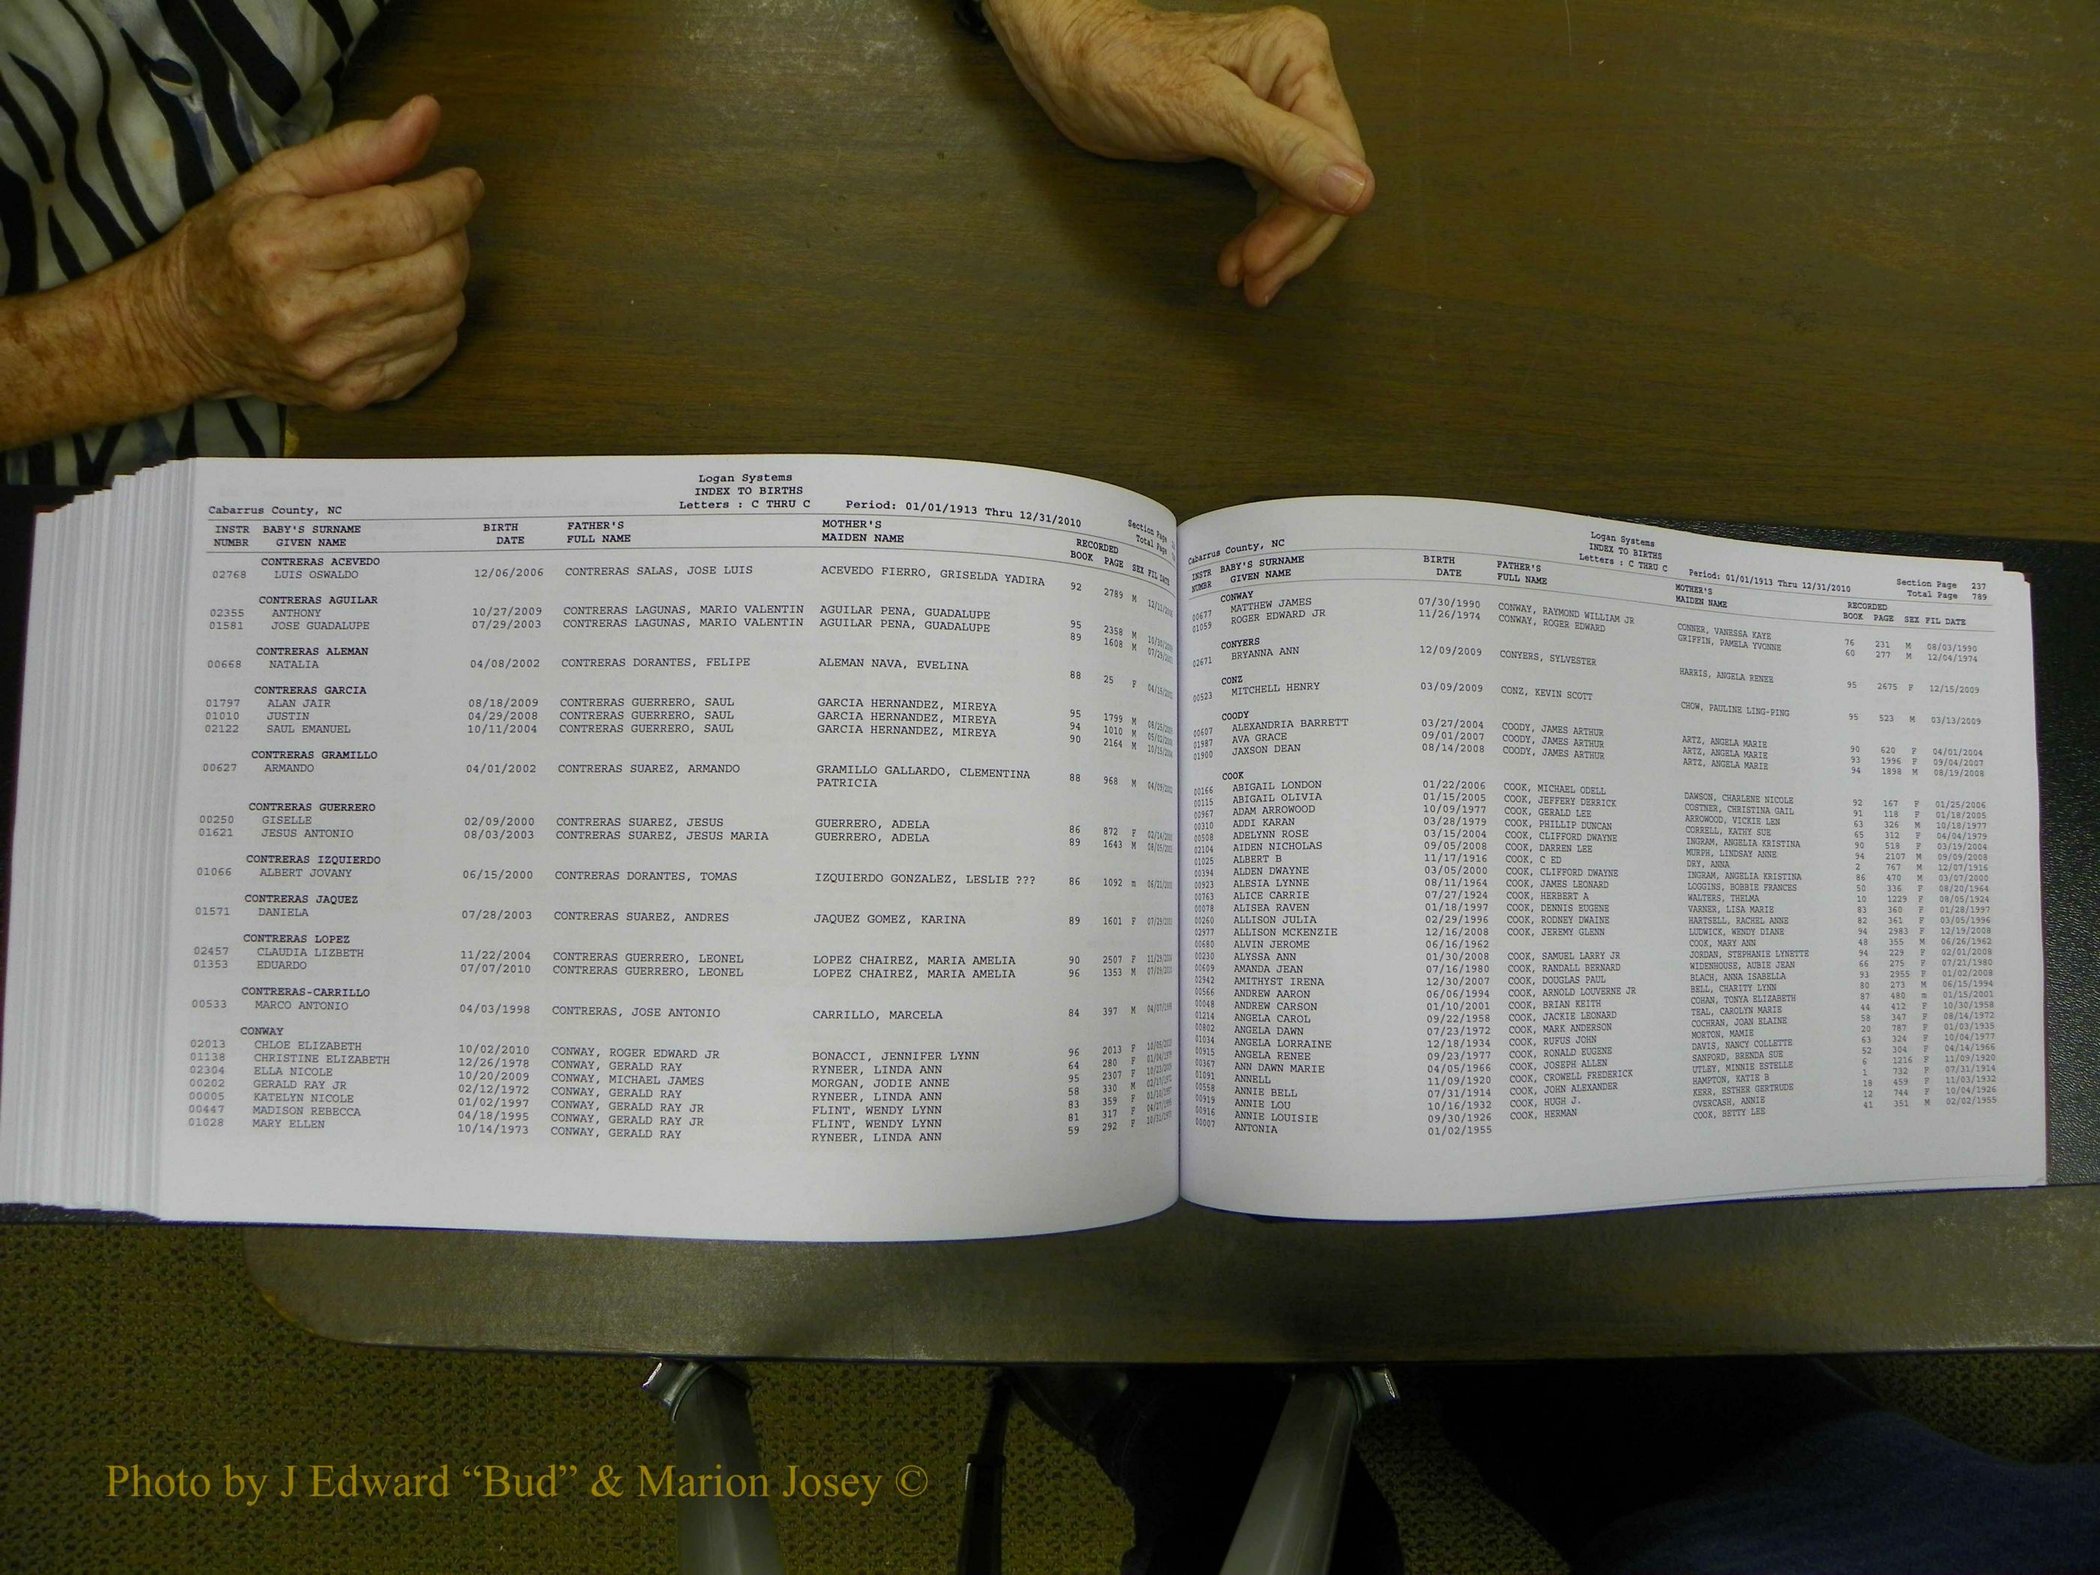 Logan Systems
INDEX TO BIRTHS
Cabarrus County, NC Letters : C THRU C Period: 01/01/1913 Thru 12/31/2010 Section Page
Total Page
INSTR BABY'S SURNAME BIRTH FATHER'S MOTHER'S RECORDED
NUMBR GIVEN NAME DATE FULL NAME MAIDEN NAME BOOK PAGE SEX FIL DATE
CONTRERAS ACEVEDO
02768 LUIS OSWALDO 12/06/2006 CONTRERAS SALAS, JOSE LUIS ACEVEDO FIERRO, GRISELDA YADIRA 92 2789 M
CONTRERAS AGUILAR
02355 ANTHONY 10/27/2009 CONTRERAS LAGUNAS, MARIO VALENTIN AGUILAR PENA, GUADALUPE 95 2358 M
01581 JOSE GUADALUPE 07/29/2003 CONTRERAS LAGUNAS, MARIO VALENTIN AGUILAR PENA, GUADALUPE 89 1608 M
CONTRERAS ALEMAN
00668 NATALIA 04/08/2002 CONTRERAS DORANTES, FELIPE ALEMAN NAVA, EVELINA 88 25 F
CONTRERAS GARCIA
01797 ALAN JAIR 08/18/2009 CONTRERAS GUERRERO, SAUL GARCIA HERNANDEZ, MIREYA 95 1799 M
01010 JUSTIN 04/29/2008 CONTRERAS GUERRERO, SAUL GARCIA HERNANDEZ, MIREYA 94 1010 M
02122 SAUL EMANUEL 10/11/2004 CONTRERAS GUERRERO, SAUL GARCIA HERNANDEZ, MIREYA 90 2164 M
CONTRERAS GRAMILLO
00627 ARMANDO 04/01/2002 CONTRERAS SUAREZ, ARMANDO GRAMILLO GALLARDO, CLEMENTINA 88 968 M
PATRICIA
CONTRERAS GUERRERO
00250 GISELLE 02/09/2000 CONTRERAS SUAREZ, JESUS GUERRERO, ADELA 86 872 F
01621 JESUS ANTONIO 08/03/2003 CONTRERAS SUAREZ, JESUS MARIA GUERRERO, ADELA 89 1643 M
CONTRERAS IZQUIERDO
01066 ALBERT JOVANY 06/15/2000 CONTRERAS DORANTES, TOMAS IZQUIERDO GONZALEZ, LESLIE ??? 86 1092 m
CONTRERAS JAQUEZ
01571 DANIELA 07/28/2003 CONTRERAS SUAREZ, ANDRES JAQUEZ GOMEZ, KARINA 89 1601 F
CONTRERAS LOPEZ
02457 CLAUDIA LIZBETH 11/22/2004 CONTRERAS GUERRERO, LEONEL LOPEZ CHAIREZ, MARIA AMELIA 90 2507 F
01353 EDUARDO 07/07/2010 CONTRERAS GUERRERO, LEONEL LOPEZ CHAIREZ, MARIA AMELIA 96 1353 M
CONTRERAS-CARRILLO
00533 MARCO ANTONIO 04/03/1998 CONTRERAS, JOSE ANTONIO CARRILLO, MARCELA 84 397 M
CONWAY
02013 CHLOE ELIZABETH 10/02/2010 CONWAY, ROGER EDWARD JR BONACCI, JENNIFER LYNN 96 2013 F
01138 CHRISTINE ELIZABETH 12/26/1978 CONWAY, GERALD RAY RYNEER, LINDA ANN 64 280 F
02304 ELLA NICOLE 10/20/2009 CONWAY, MICHAEL JAMES MORGAN, JODIE ANNE 95 2307 F
00202 GERALD RAY JR 02/12/1972 CONWAY, GERALD RAY RYNEER, LINDA ANN 58 330 M
00005 KATELYN NICOLE 01/02/1997 CONWAY, GERALD RAY JR FLINT, WENDY LYNN 83 359 F
00447 MADISON REBECCA 04/18/1995 CONWAY, GERALD RAY JR FLINT, WENDY LYNN 81 317 F
01028 MARY ELLEN 10/14/1973 CONWAY, GERALD RAY RYNEER, LINDA ANN 59 292 F
Logan Systems
INDEX TO BIRTHS
Cabarrus County, NC Letters : C THRU C Period: 01/01/1913 Thru 12/31/2010 Section Page 237
Total Page 789
INSTR BABY'S SURNAME BIRTH FATHER'S MOTHER'S RECORDED
NUMBR GIVEN NAME DATE FULL NAME MAIDEN NAME BOOK PAGE SEX FIL DATE
CONWAY
00677 MATTHEW JAMES 07/30/1990 CONWAY, RAYMOND WILLIAM JR CONNER, VANESSA KAYE 76 231 M 08/03/1990
01059 ROGER EDWARD JR 11/26/1974 CONWAY, ROGER EDWARD GRIFFIN, PAMELA YVONNE 60 277 M 12/04/1974
CONYERS
02671 BRYANNA ANN 12/09/2009 CONYERS, SYLVESTER HARRIS, ANGELA RENEE 95 2675 F 12/15/2009
CONZ
00523 MITCHELL HENRY 03/09/2009 CONZ, KEVIN SCOTT CHOW, PAULINE LING-PING 95 523 M 03/13/2009
COODY
00607 ALEXANDRIA BARRETT 03/27/2004 COODY, JAMES ARTHUR ARTZ, ANGELA MARIE 90 620 F 04/01/2004
01987 AVA GRACE 09/01/2007 COODY, JAMES ARTHUR ARTZ, ANGELA MARIE 93 1996 F 09/04/2007
01900 JAXSON DEAN 08/14/2008 COODY, JAMES ARTHUR ARTZ, ANGELA MARIE 94 1898 M 08/19/2008
COOK
00166 ABIGAIL LONDON 01/22/2006 COOK, MICHAEL ODELL DAWSON, CHARLENE NICOLE 92 167 F 01/25/2006
00115 ABIGAIL OLIVIA 01/15/2005 COOK, JEFFERY DERRICK COSTNER, CHRISTINA GAIL 91 118 F 01/18/2005
00967 ADAM ARROWOOD 10/09/1977 COOK, GERALD LEE ARROWOOD, VICKIE LEN 63 326 M 10/18/1977
00310 ADDI KARAN 03/28/1979 COOK, PHILLIP DUNCAN CORRELL, KATHY SUE 65 312 F 04/04/1979
00508 ADELYNN ROSE 03/15/2004 COOK, CLIFFORD DWAYNE INGRAM, ANGELIA KRISTINA 90 518 F 03/19/2004
02104 AIDEN NICHOLAS 09/05/2008 COOK, DARREN LEE MURPH, LINDSAY ANNE 94 2107 M 09/09/2008
01025 ALBERT B 11/17/1916 COOK, C ED DRY, ANNA 2 767 M 12/07/1916
00394 ALDEN DWAYNE 03/05/2000 COOK, CLIFFORD DWAYNE INGRAM, ANGELIA KRISTINA 86 470 M 03/07/2000
00923 ALESIA LYNNE 08/11/1964 COOK, JAMES LEONARD LOGGINS, BOBBIE FRANCES 50 336 F 08/20/1964
00763 ALICE CARRIE 07/27/1924 COOK, HERBERT A WALTERS, THELMA 10 1229 F 08/05/1924
00078 ALISEA RAVEN 01/18/1997 COOK, DENNIS EUGENE VARNER, LISA MARIE 83 360 F 01/28/1997
00260 ALLISON JULIA 02/29/1996 COOK, RODNEY DWAINE HARTSELL, RACHEL ANNE 82 361 F 03/05/1996
02977 ALLISON MCKENZIE 12/16/2008 COOK, JEREMY GLENN LUDWICK, WENDY DIANE 94 2983 F 12/19/2008
00680 ALVIN JEROME 06/16/1962 COOK, MARY ANN 48 355 M 06/26/1962
00230 ALYSSA ANN 01/30/2008 COOK, SAMUEL LARRY JR JORDAN, STEPHANIE LYNETTE 94 229 F 02/01/2008
00609 AMANDA JEAN 07/16/1980 COOK, RANDALL BERNARD WIDENHOUSE, AUBIE JEAN 66 275 F 07/21/1980
02942 AMITHYST IRENA 12/30/2007 COOK, DOUGLAS PAUL BLACH, ANNA ISABELLA 93 2955 F 01/02/2008
00566 ANDREW AARON 06/06/1994 COOK, ARNOLD LOUVERNE JR BELL, CHARITY LYNN 80 273 M 06/15/1994
00048 ANDREW CARSON 01/10/2001 COOK, BRIAN KEITH COHAN, TONYA ELIZABETH 87 480 m 01/15/2001
01214 ANGELA CAROL 09/22/1958 COOK, JACKIE LEONARD TEAL, CAROLYN MARIE 44 412 F 10/30/1958
00802 ANGELA DAWN 07/23/1972 COOK, MARK ANDERSON COCHRAN, JOAN ELAINE 58 347 F 08/14/1972
01034 ANGELA LORRAINE 12/18/1934 COOK, RUFUS JOHN MORTON, MAMIE 20 787 F 01/03/1935
00915 ANGELA RENEE 09/23/1977 COOK, RONALD EUGENE DAVIS, NANCY COLLETTE 63 324 F 10/04/1977
00367 ANN DAWN MARIE 04/05/1966 COOK, JOSEPH ALLEN SANFORD, BRENDA SUE 52 304 F 04/14/1966
01091 ANNELL 11/09/1920 COOK, CROWELL FREDERICK UTLEY, MINNIE ESTELLE 6 1216 F 11/09/1920
00558 ANNIE BELL 07/31/1914 COOK, JOHN ALEXANDER HAMPTON, KATIE B 1 732 F 07/31/1914
00919 ANNIE LOU 10/16/1932 COOK, HUGH J. KERR, ESTHER GERTRUDE 18 459 F 11/03/1932
00916 ANNIE LOUISIE 09/30/1926 COOK, HERMAN OVERCASH, ANNIE 12 744 F 10/04/1926
00007 ANTONIA 01/02/1955 COOK, BETTY LEE 41 351 M 02/02/1955
Photo by J Edward “Bud” & Marion Josey ©